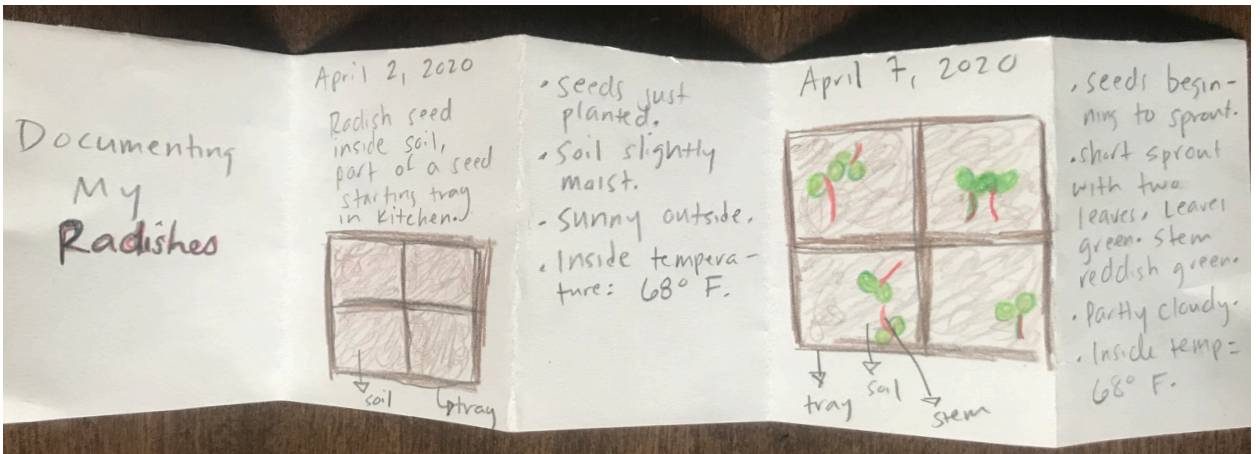 Documenting
My
Radishes
April 2, 2020
Radish seed
inside soil,
part of a seed
starting tray
in kitchen.
soil
tray
• seeds just
planted.
• Soil slightly
moist.
- Sunny outside.
• Inside tempera-
ture: 68° F.
April 7, 2020
tray
soil
stem
• seeds begin-
ning to sprout.
• short sprout
with two
leaves. Leaves
green. stem
reddish green.
• Partly cloudy.
• Inside temp=
68° F.